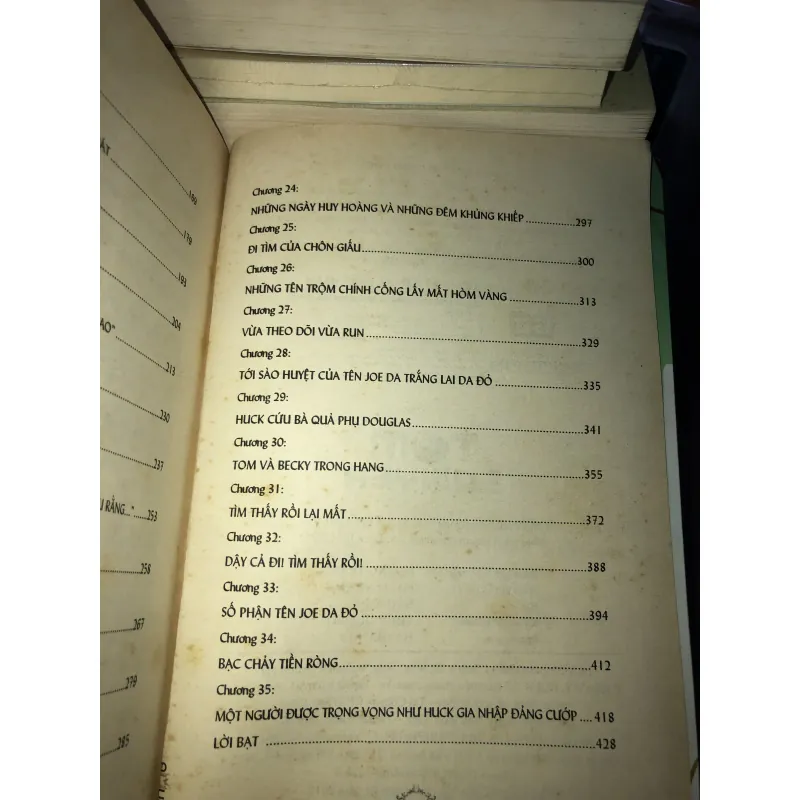 ÁT
169
179
193
204
AO"
213
230
237
RẰNG..."......253
258
267
279
285
Chương 24:
NHỮNG NGÀY HUY HOÀNG VÀ NHỮNG ĐÊM KHỦNG KHIẾP.................297
Chương 25:
ĐI TÌM CỦA CHÔN GIẤU.................300
Chương 26:
NHỮNG TÊN TRỘM CHÍNH CỐNG LẤY MẤT HÒM VÀNG.................313
Chương 27:
VỪA THEO DÕI VỪA RUN.................329
Chương 28:
TỚI SÀO HUYỆT CỦA TÊN JOE DA TRẮNG LAI DA ĐỎ.................335
Chương 29:
HUCK CỨU BÀ QUẢ PHỤ DOUGLAS.................341
Chương 30:
TOM VÀ BECKY TRONG HANG.................355
Chương 31:
TÌM THẤY RỒI LẠI MẤT.................372
Chương 32:
DẬY CẢ ĐI! TÌM THẤY RỒI!.................388
Chương 33:
SỐ PHẬN TÊN JOE DA ĐỎ.................394
Chương 34:
BẠC CHẢY TIỀN RÒNG.................412
Chương 35:
MỘT NGƯỜI ĐƯỢC TRỌNG VỌNG NHƯ HUCK GIA NHẬP ĐẢNG CƯỚP ....418
LỜI BẠT .................428